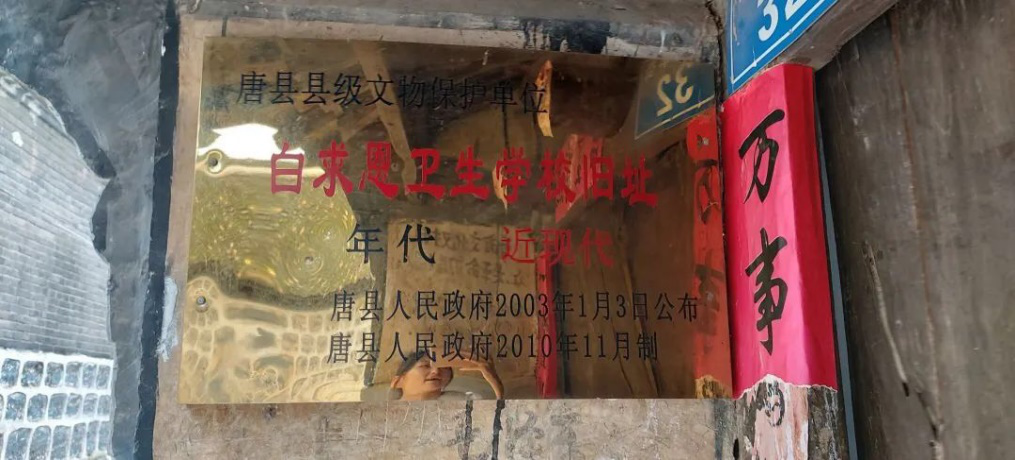 唐县县级文物保护单位
白求恩卫生学校旧址
年代 近现代
唐县人民政府2003年1月3日公布
唐县人民政府2010年11月制
32
万事